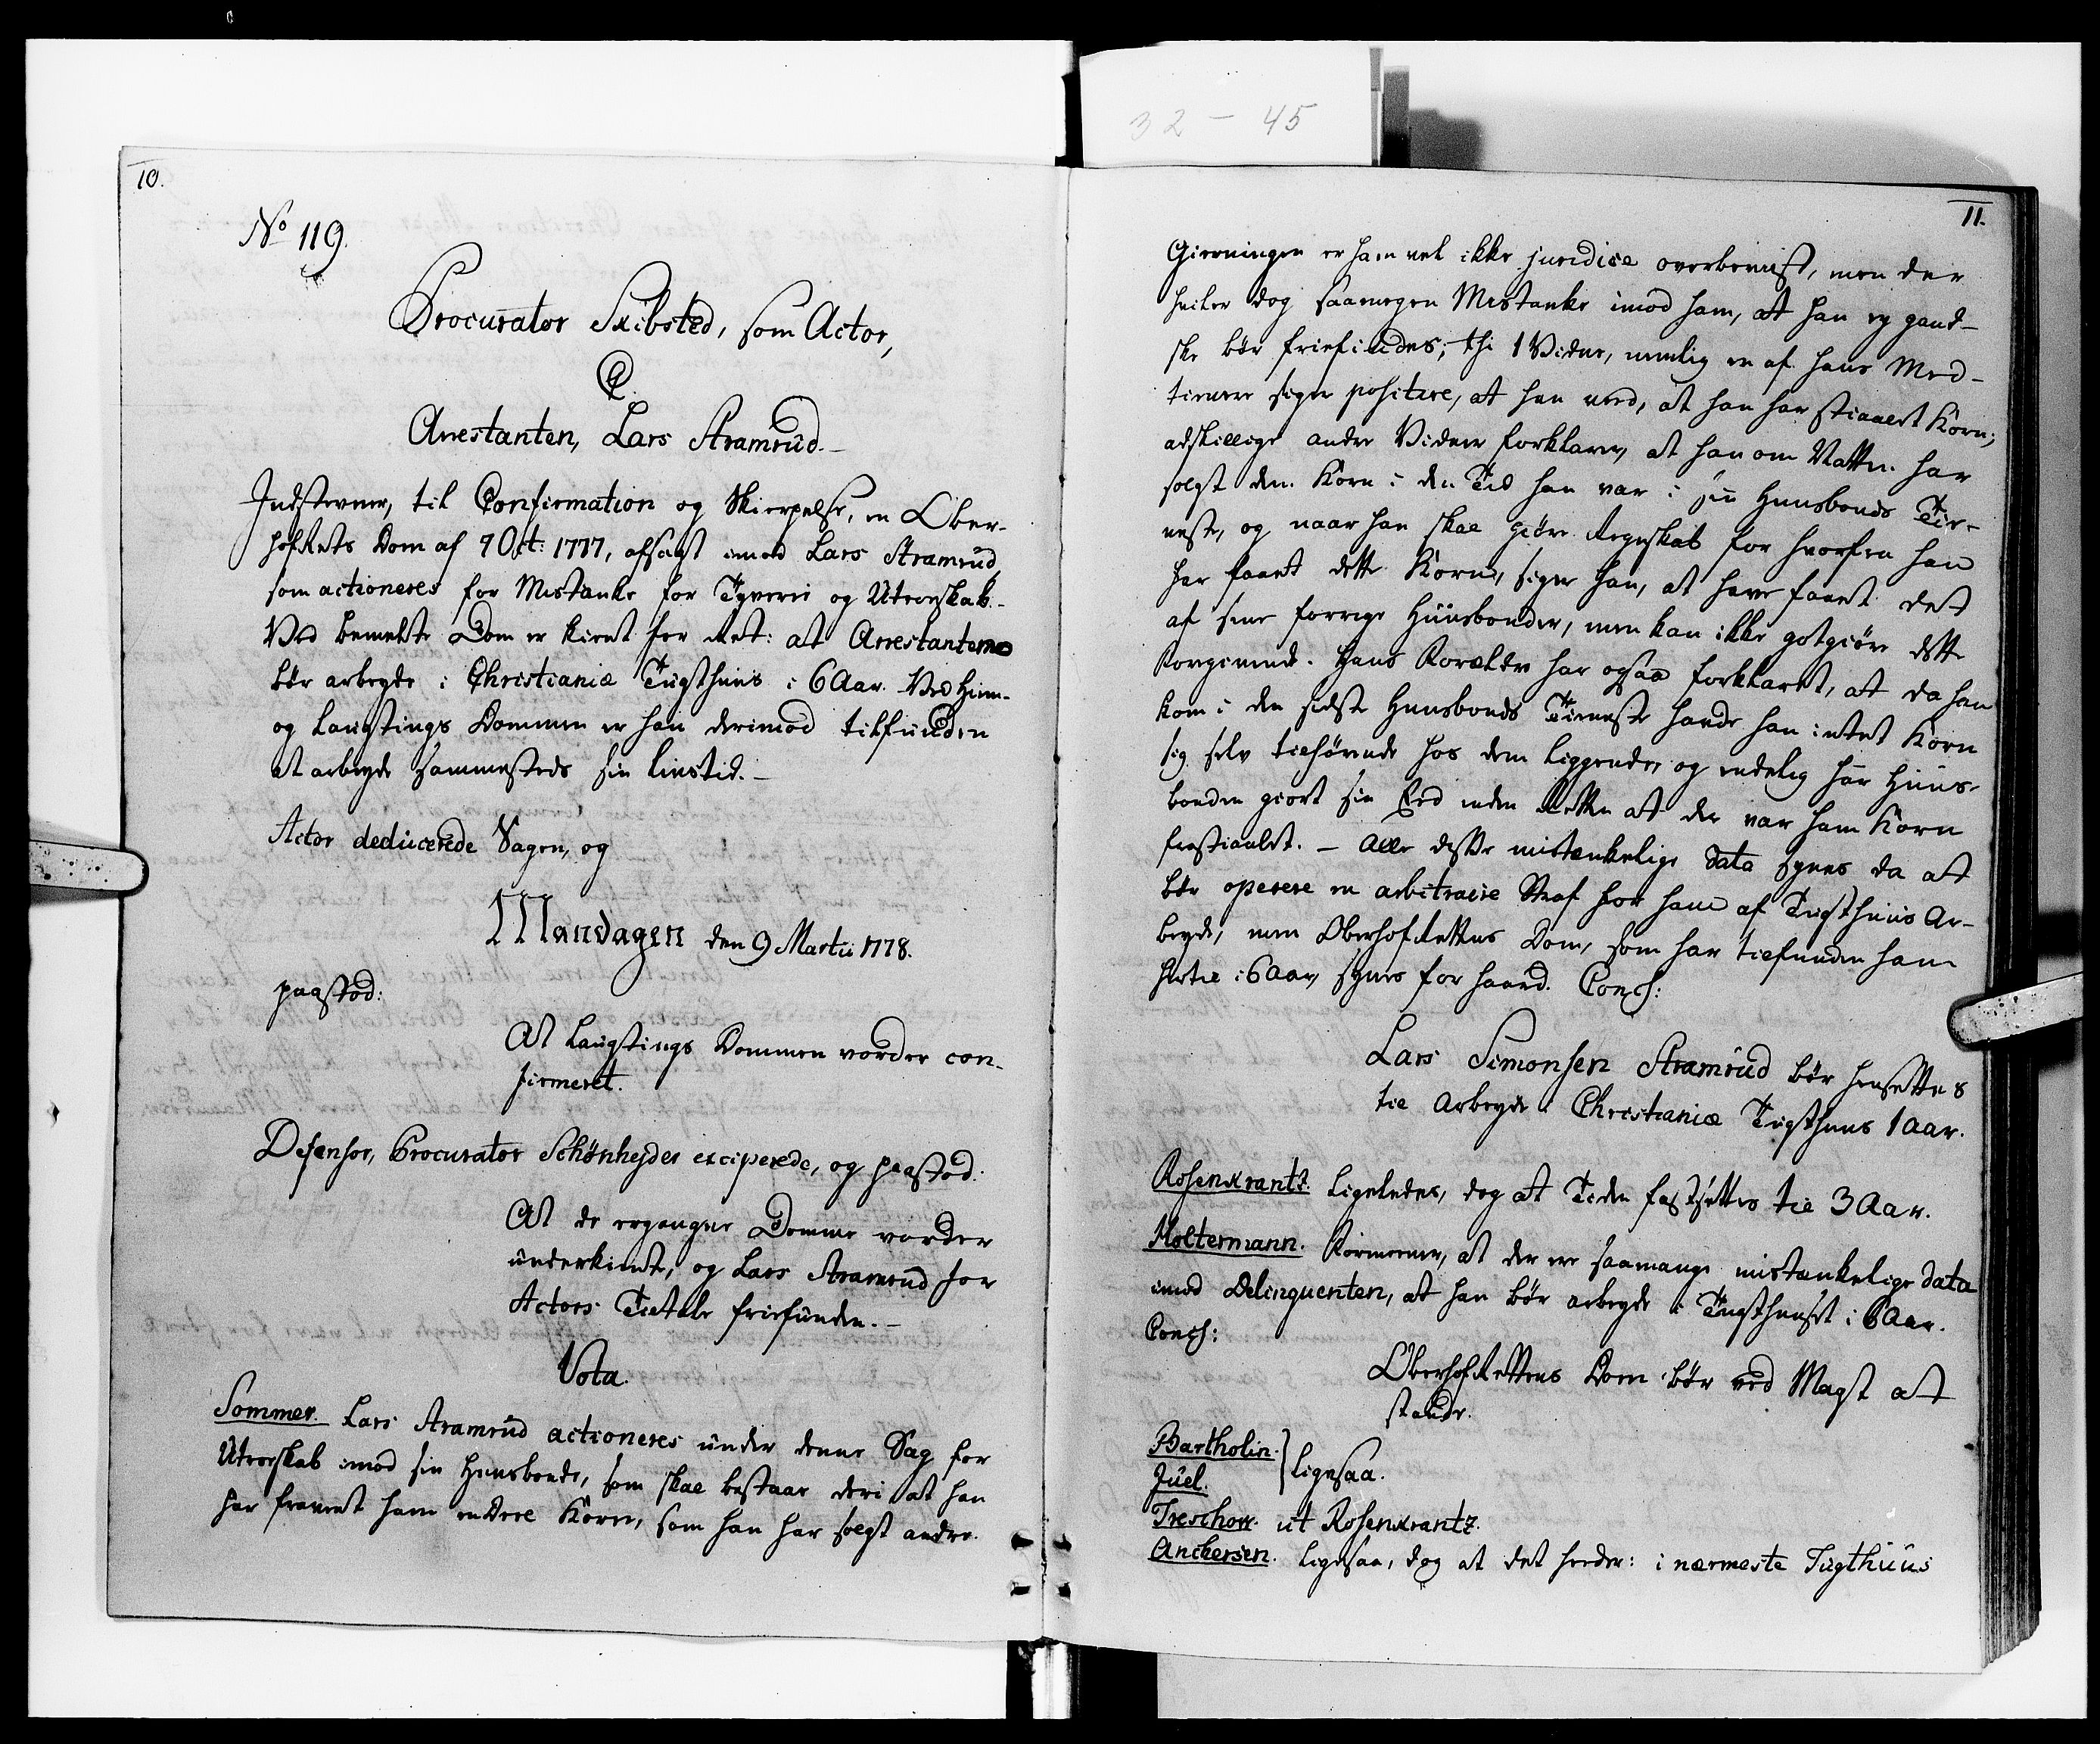 32 - 45
10.
No 119.
Procurator Skibsted, som Actor,
C
Arrestanten, Lars Aramrud.
Indstevner, til Confirmation og Skierpelse, en Ober-
hofRets Dom af 7 Oct: 1777, afsagt imod Lars Aramrud,
som actioneres for Mistanke for Tyverie og Utroeskab.
Ved bemelte Dom er kient for Ret: at Arrestanten
bør arbeyde i Christianiæ Tugthuus i 6 Aar. Ved Hiem-
og Laugtings Dommen er han derimod tilfunden
at arbeyde sammesteds sin Livstid.
Actor deducerede Sagen, og
Mandagen den 9 Martii 1778.
paastod:
At Laugtings Dommen vorder con-
firmeret.
Defensor, Procurator Schønheyder exciperede, og paastod:
At de ergangne Domme vorder
underkiendt, og Lars Aramrud for
Actors Tiltale friefunden.
Vota.
Sommer. Lars Aramrud actioneres under denne Sag for
Utroeskab imod sin Huusbonde, som skal bestaae deri at han
har fravendt ham endeel Korn, som han har solgt andre.
11.
Gierningen er ham vel ikke juridice overbeviist, men der
hviler dog saamegen Mistanke imod ham, at han ey gand-
ske bør friefindes; thi 1 Vidne, nemlig en af hans Med-
tienere siger positive, at han veed, at han har stiaalet Korn;
adskillige andre Vidner forklarer, at han om Natten har
solgt dem Korn i den Tid han var i sin Huusbonds Tie-
neste, og naar han skal giøre Regnskab for hvorfra han
har faaet dette Korn, siger han, at have faaet det
af sine forrige Huusbonder, men kan ikke gotgiøre dette
Foregivende. Hans Forældre har ogsaa forklaret, at da han
kom i den sidste Huusbonds Tieneste havde han intet Korn
sig selv tilhørende hos dem liggende, og endelig har Huus-
bonden giort sin Eed inden Retten at der var ham Korn
frastiaalet. - Alle disse mistænkelige data synes da at
bør operere en arbitraire Straf for ham af Tugthuus Ar-
beyde, men OberhofRettens Dom, som har tilfunden ham
hertil i 6 Aar, synes for haard. Concl:
Lars Simonsen Aramrud bør hensettes
til Arbeyde i Christianiæ Tugthuus 1 Aar.
Rosenkrantz. Ligeledes, dog at Tiden fastsættes til 3 Aar.
Koltermann. Formeener, at der er saamange mistænkelige data
imod Delinquenten, at han bør arbeyde i Tugthuuset i 6 Aar.
Concl:
OberhofRettens Dom bør ved Magt at
stande.
Bartholin. } Ligesaa.
Juel.
Treschow. ut Rosenkrantz.
Anchersen. Ligesaa, dog at det heder: i nærmeste Tugthuus